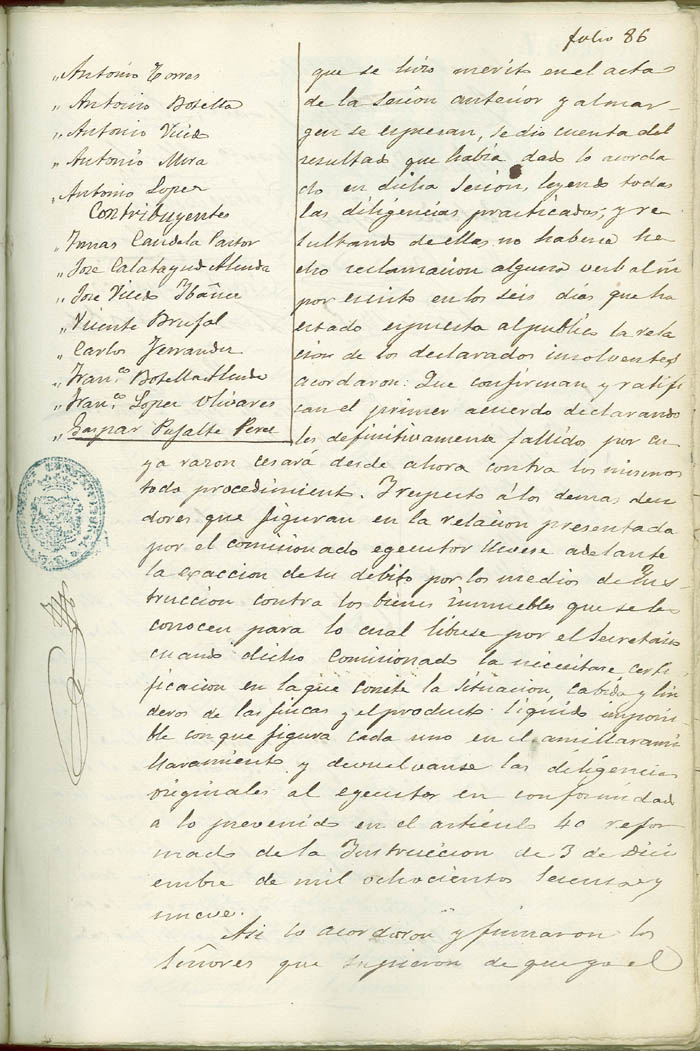 folio 86
„ Antonio Torres
„ Antonio Botella
„ Antonio Vicdo
„ Antonio Mira
„ Antonio Lopez
Contribuyentes
„ Tomas Candela Pastor
„ Jose Calatayud Almda
„ Jose Vicdo Ibañez
„ Vicente Brufal
„ Carlos Ferrandez
„ Fran.co Botella Almda
„ Fran.co Lopez Olivares
„ Gaspar Pujalte Perez
que se hizo merito en el acta
de la sesion anterior y al mar-
gen se espresan, se dio cuenta del
resultado que habia dado lo acorda
do en dicha Sesion, leyendo todas
las diligencias practicadas, y re
sultando de ellas no haberse he
cho reclamacion alguna verbal ni
por escrito en los seis dias que ha
estado espuesta al publico la rela
cion de los declarados insolventes
acordaron: Que confirman y ratifi
can el primer acuerdo declarando
les definitivamente fallidos por cu
ya razon cesará desde ahora contra los mismos
todo procedimiento. Y respecto á los demas deu
dores que figuran en la relacion presentada
por el comisionado egecutor llevese adelante
la exaccion de su debito por los medios de Ins-
truccion contra los bienes inmuebles que se les
conocen para lo cual librese por el Secretario
cuando dicho comisionado la necesitare certi
ficacion en la que conste la situacion, cabida y lin
deros de las fincas y el producto liquido imponi
ble con que figura cada uno en el amillarami
llaramiento y devuelvanse las diligencias
originales al egecutor en conformidad
a lo prevenido en el articulo 40 refor
mado de la Instruccion de 3 de Dici
embre de mil ochocientos sesenta y
nueve.
Asi lo acordaron y firmaron los
Señores que supieron de que yo el